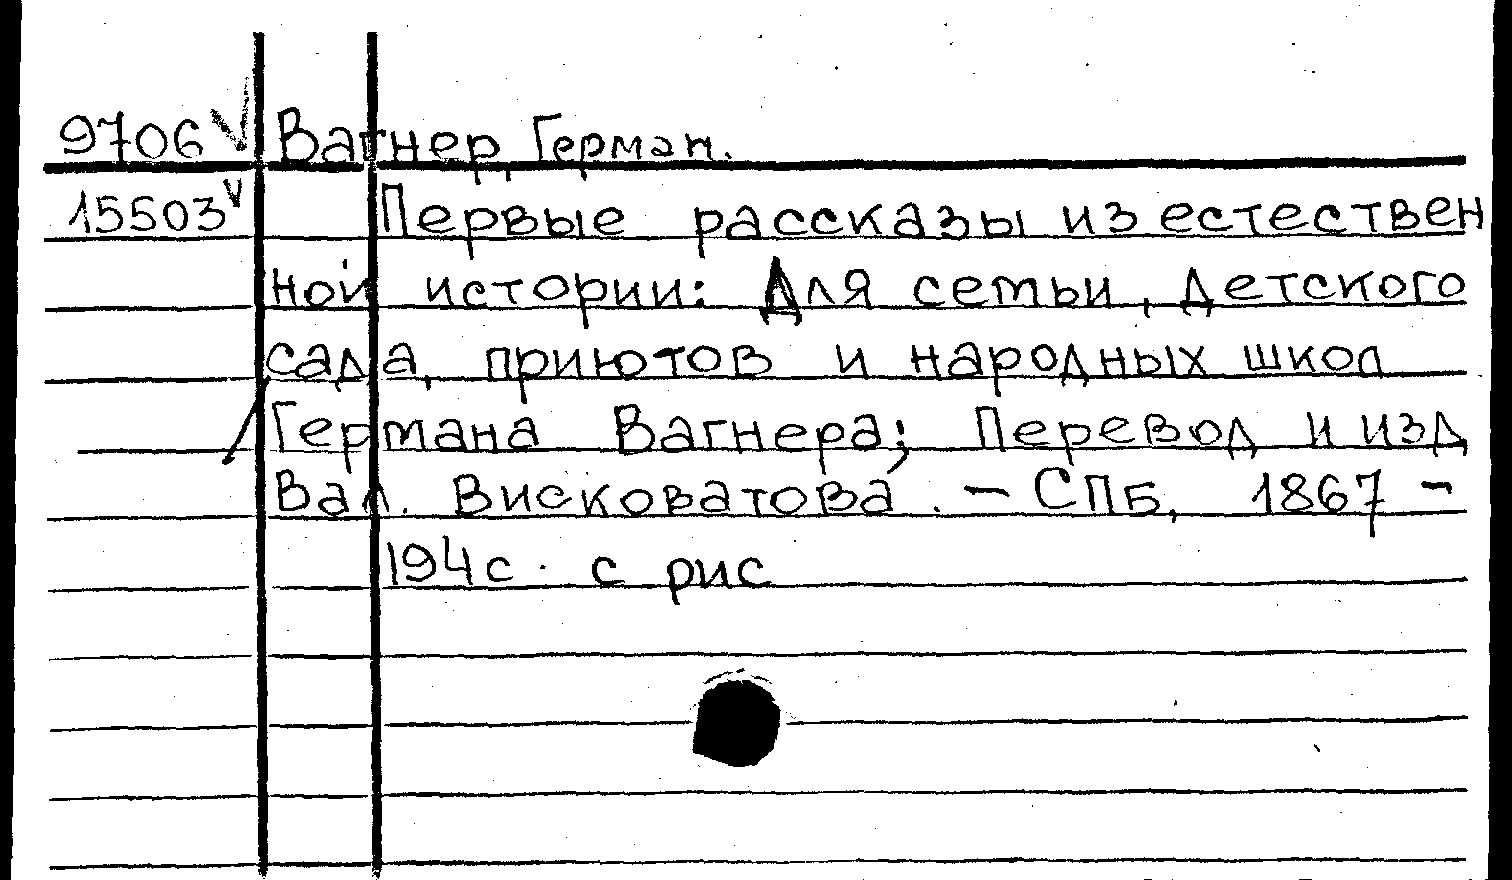 9706 V Вагнер, Герман.
15503 V Первые рассказы из естествен
ной истории: Для семьи, детского
сада, приютов и народных школ
/ Германа Вагнера; Перевод и изд
Вал. Висковатова. - СПб, 1867 -
194с. с рис